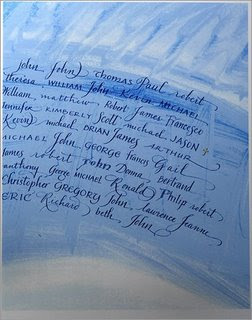 john John Thomas Paul robert
theresa WILLIAM John Kevin MICHAEL
William matthew Robert James Francesco
Jennifer KIMBERLY Scott michael JASON
Kevin michael BRIAN James ARTHUR
MICHAEL John GEORGE francis Gail
James robert John Donna bertrand
anthony George MICHAEL Ronald Philip robert
Christopher GREGORY John Laurence Jeanne
ERIC Richard beth John